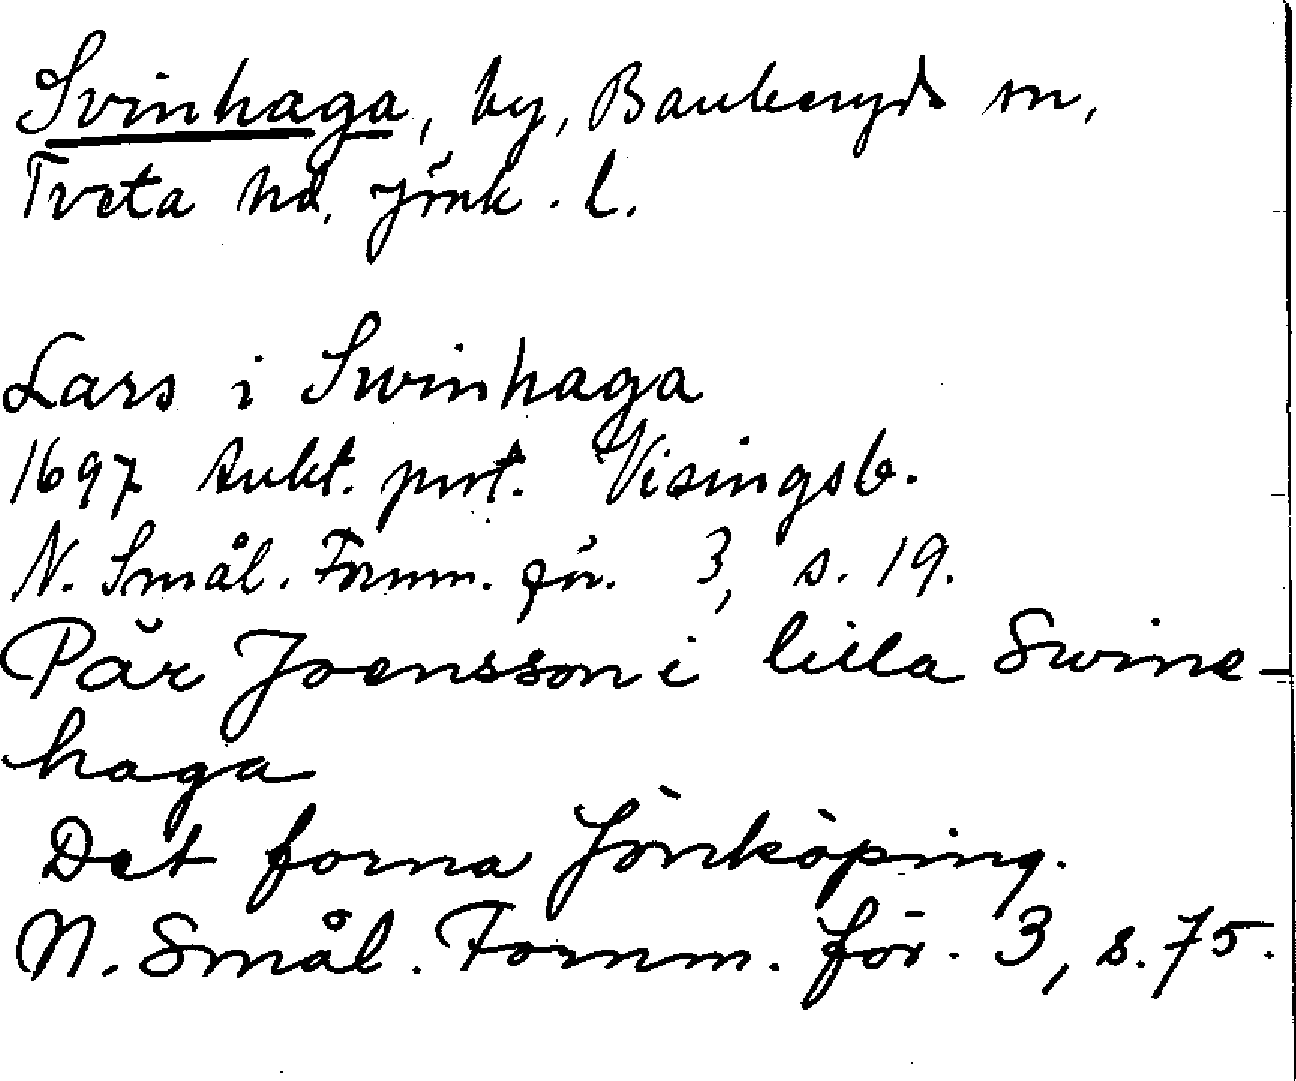 Svinhaga, by, Bankeryds sn,
Tveta hd, Jönk. l.
Lars i Swinhaga
1697 Aukt. prot. Visingsb.
N. Smål. Fornm. för. 3, s. 19.
Pär Joensson i lilla Swine-
haga
Det forna Jönköping.
N. Smål. Fornm. för. 3, s. 75.